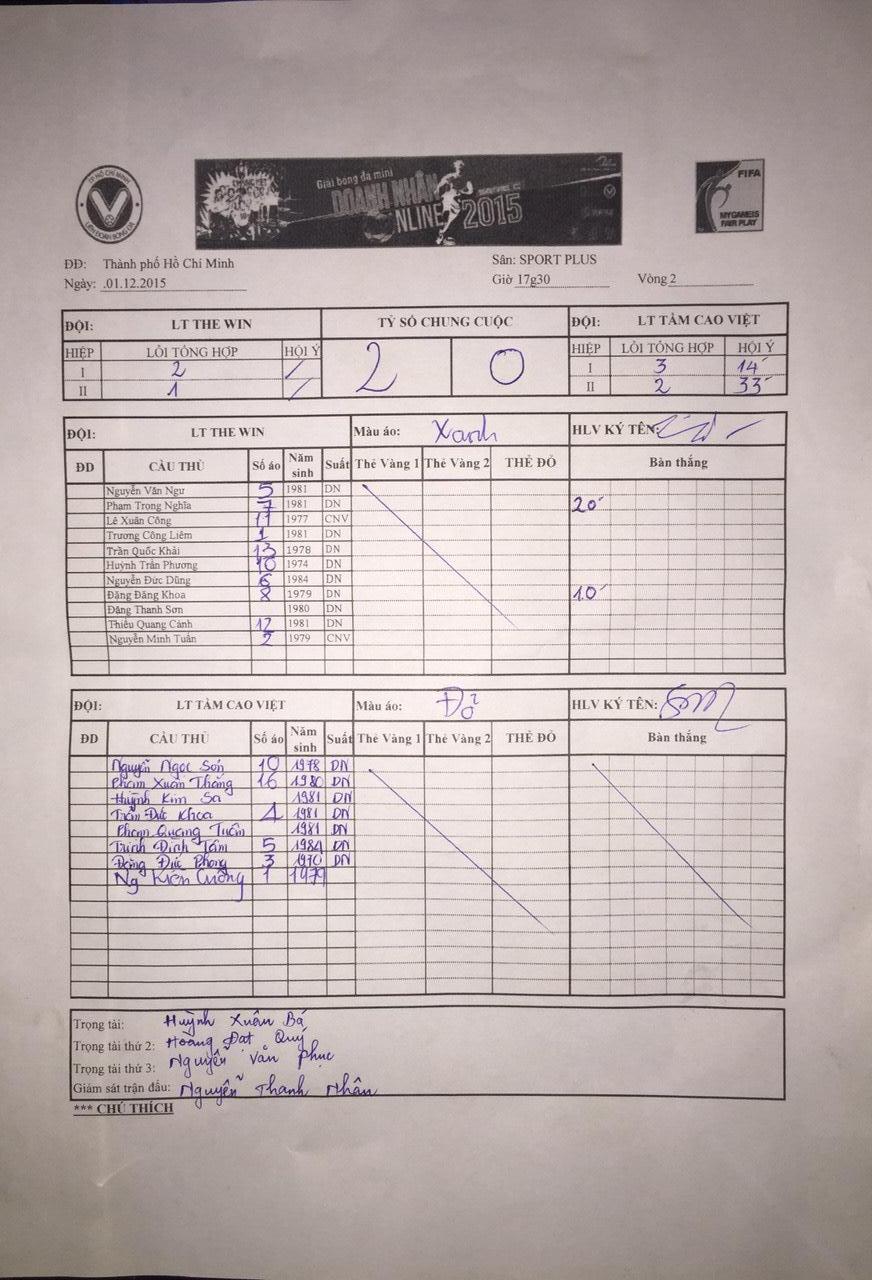 TP HỒ CHÍ MINH
LIÊN ĐOÀN BÓNG ĐÁ
Giải bóng đá mini
DOANH NHÂN
NLINE 2015
FIFA
MY GAME IS
FAIR PLAY
ĐĐ: Thành phố Hồ Chí Minh Sân: SPORT PLUS
Ngày: .01.12.2015 Giờ 17g30 Vòng 2
ĐỘI: LT THE WIN TỶ SỐ CHUNG CUỘC ĐỘI: LT TẦM CAO VIỆT
HIỆP LỖI TỔNG HỢP HỘI Ý 2 0 HIỆP LỖI TỔNG HỢP HỘI Ý
I 2 / I 3 14'
II 1 / II 2 33'
ĐỘI: LT THE WIN Màu áo: Xanh HLV KÝ TÊN:
ĐD CẦU THỦ Số áo Năm sinh Suất Thẻ Vàng 1 Thẻ Vàng 2 THẺ ĐỎ Bàn thắng
Nguyễn Văn Ngư 5 1981 DN
Phạm Trọng Nghĩa 7 1981 DN 20'
Lê Xuân Công 17 1977 CNV
Trương Công Liêm 1 1981 DN
Trần Quốc Khải 13 1978 DN
Huỳnh Trần Phương 10 1974 DN
Nguyễn Đức Dũng 6 1984 DN
Đặng Đăng Khoa 8 1979 DN 10'
Đặng Thanh Sơn 1980 DN
Thiều Quang Cảnh 12 1981 DN
Nguyễn Minh Tuấn 2 1979 CNV
ĐỘI: LT TẦM CAO VIỆT Màu áo: Đỏ HLV KÝ TÊN:
ĐD CẦU THỦ Số áo Năm sinh Suất Thẻ Vàng 1 Thẻ Vàng 2 THẺ ĐỎ Bàn thắng
Nguyễn Ngọc Sơn 10 1978 DN
Phạm Xuân Thắng 16 1980 DN
Huỳnh Kim Sa 1981 DN
Trần Đức Khoa 4 1981 DN
Phạm Quang Tuấn 1981 DN
Trịnh Đình Tâm 5 1984 DN
Đặng Đức Phong 3 1970 DN
Ng Kiên Cường 1 1979
Trọng tài: Huỳnh Xuân Bá
Trọng tài thứ 2: Hoàng Đạt Quý
Trọng tài thứ 3: Nguyễn Văn Phục
Giám sát trận đấu: Nguyễn Thanh Nhân
*** CHÚ THÍCH